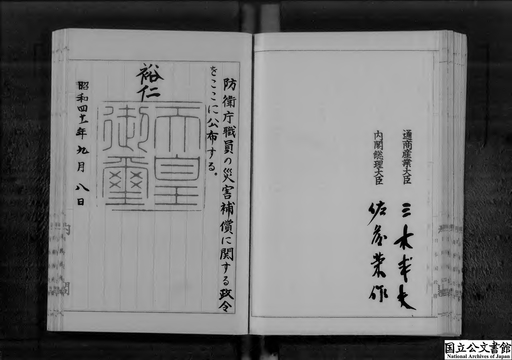 通商産業大臣 三木武夫
内閣総理大臣 佐藤榮作
防衛庁職員の災害補償に関する政令
をここに公布する。
裕仁
天皇
御璽
昭和四十一年九月八日
国立公文書館
National Archives of Japan